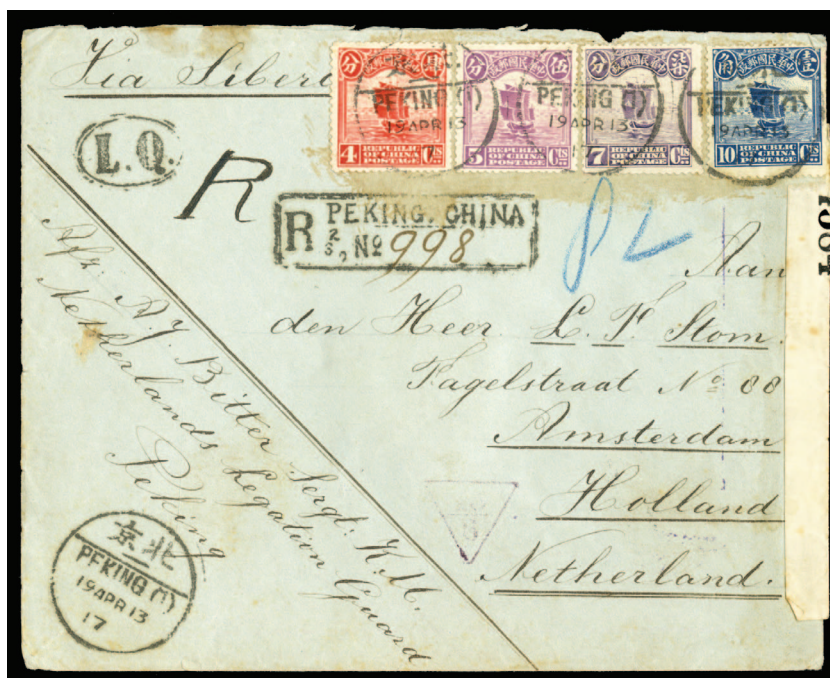 Via Siberi
分 中華民國郵政 肆
分 中華民國郵政 伍
分 中華民國郵政 柒
角 中華民國郵政 壹
PEKING (1)
19 APR 13
PEKING (1)
19 APR 13
PEKING (1)
19 APR 13
4 REPUBLIC OF CHINA POSTAGE Cts
5 REPUBLIC OF CHINA POSTAGE Cts
7 REPUBLIC OF CHINA POSTAGE Cts
10 REPUBLIC OF CHINA POSTAGE Cts
L.Q.
R
R PEKING. CHINA
No 998
Aan
den Heer L. F. Stom.
Fagelstraat No 88
Amsterdam
Holland
Netherland.
Afz. A.J. Bitter Sergt. K.M.
Netherlands Legation Guard
Peking
京北
PEKING (1)
19 APR 13
17